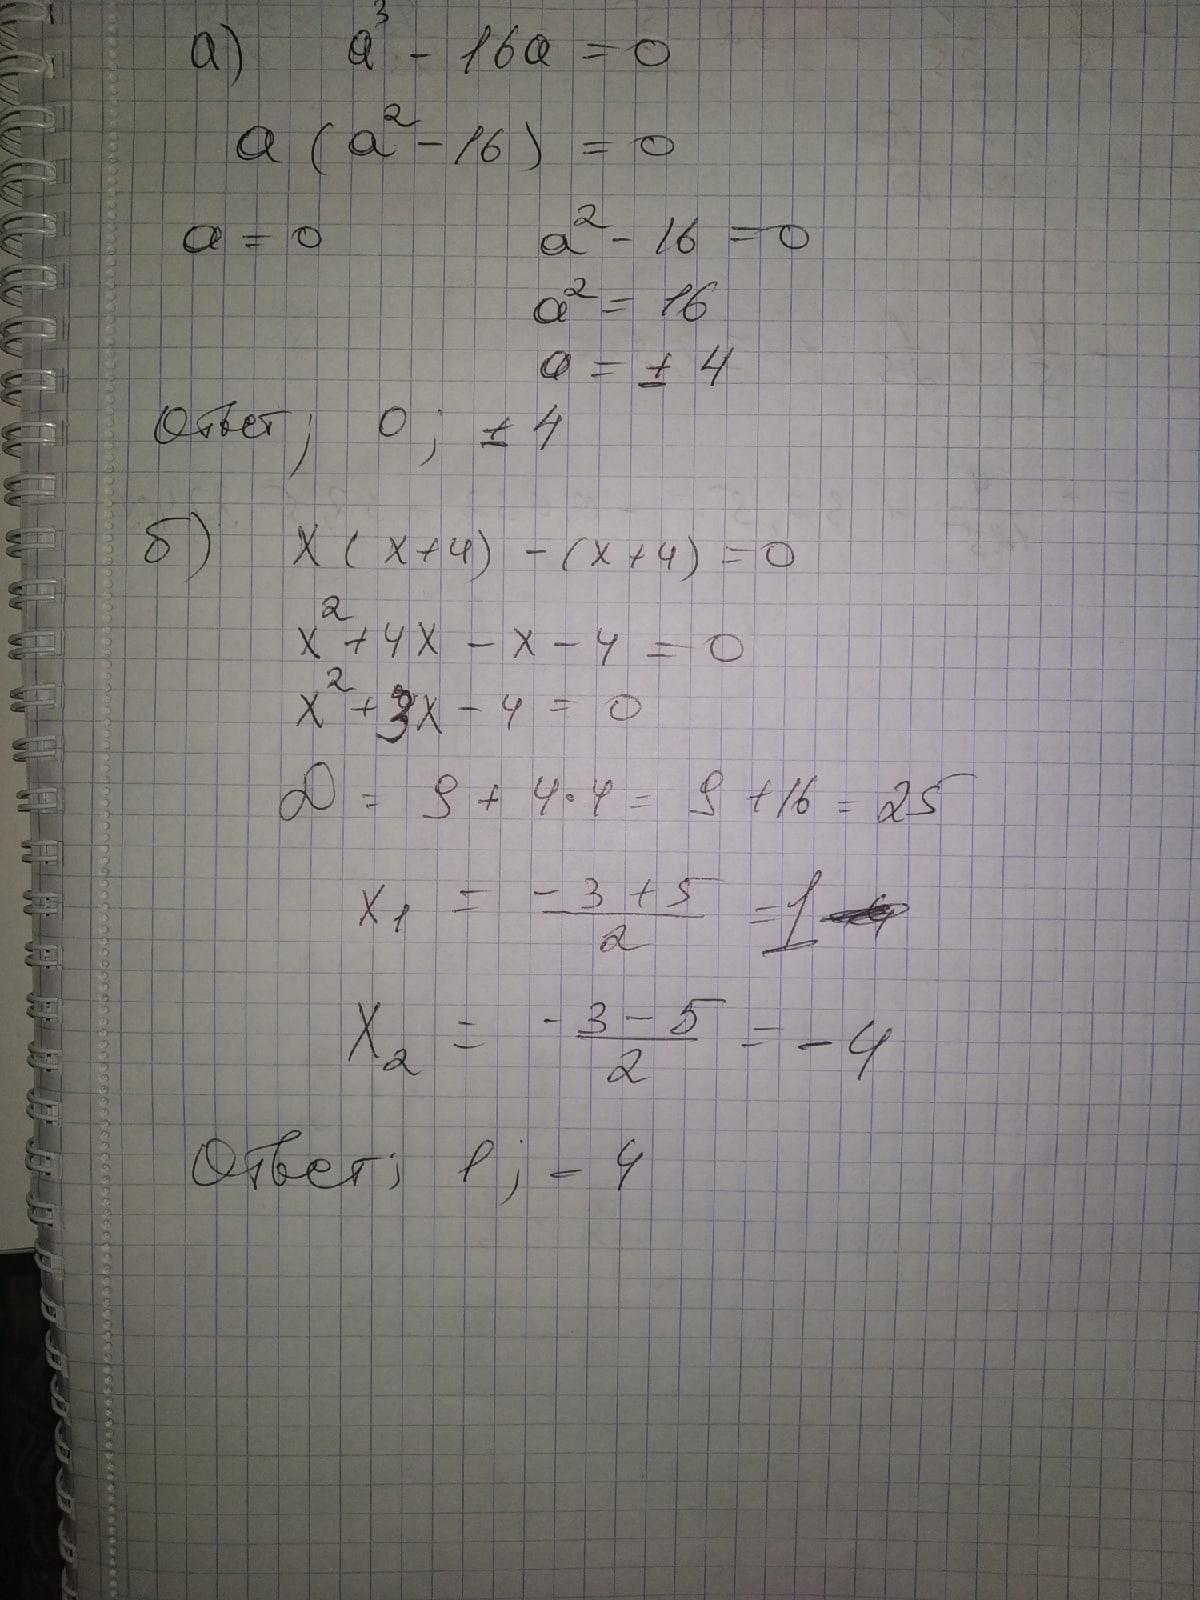 а) a³ - 16a = 0
a (a² - 16) = 0
a = 0 a² - 16 = 0
a² = 16
a = ± 4
Ответ; 0; ± 4
б) x (x+4) - (x+4) = 0
x² + 4x - x - 4 = 0
x² + 3x - 4 = 0
D = 9 + 4·4 = 9 + 16 = 25
x₁ = (-3 + 5)/2 = 1
x₂ = (-3 - 5)/2 = -4
Ответ; 1; -4